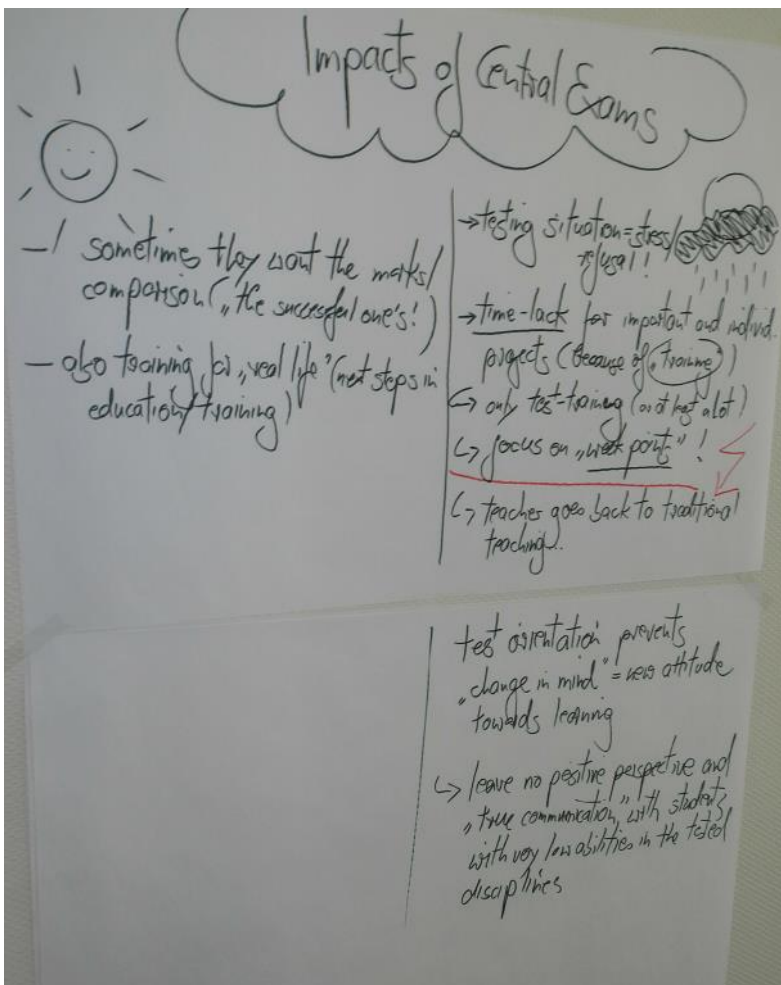 Impacts of Central Exams
– sometimes they want the marks/
comparison („the successful one's!")
– also training for „real life" (next steps in
education/training)
→ testing situation = stress/
refusal!
→ time-lack for important and individ.
projects (because of „training")
↳ only test-training (or at least a lot)
↳ focus on „weak point"!
↳ teacher goes back to traditional
teaching..
test orientation prevents
„change in mind" = new attitude
towards learning
↳ leave no positive perspective and
„true communication" with students
with very low abilities in the tested
disciplines